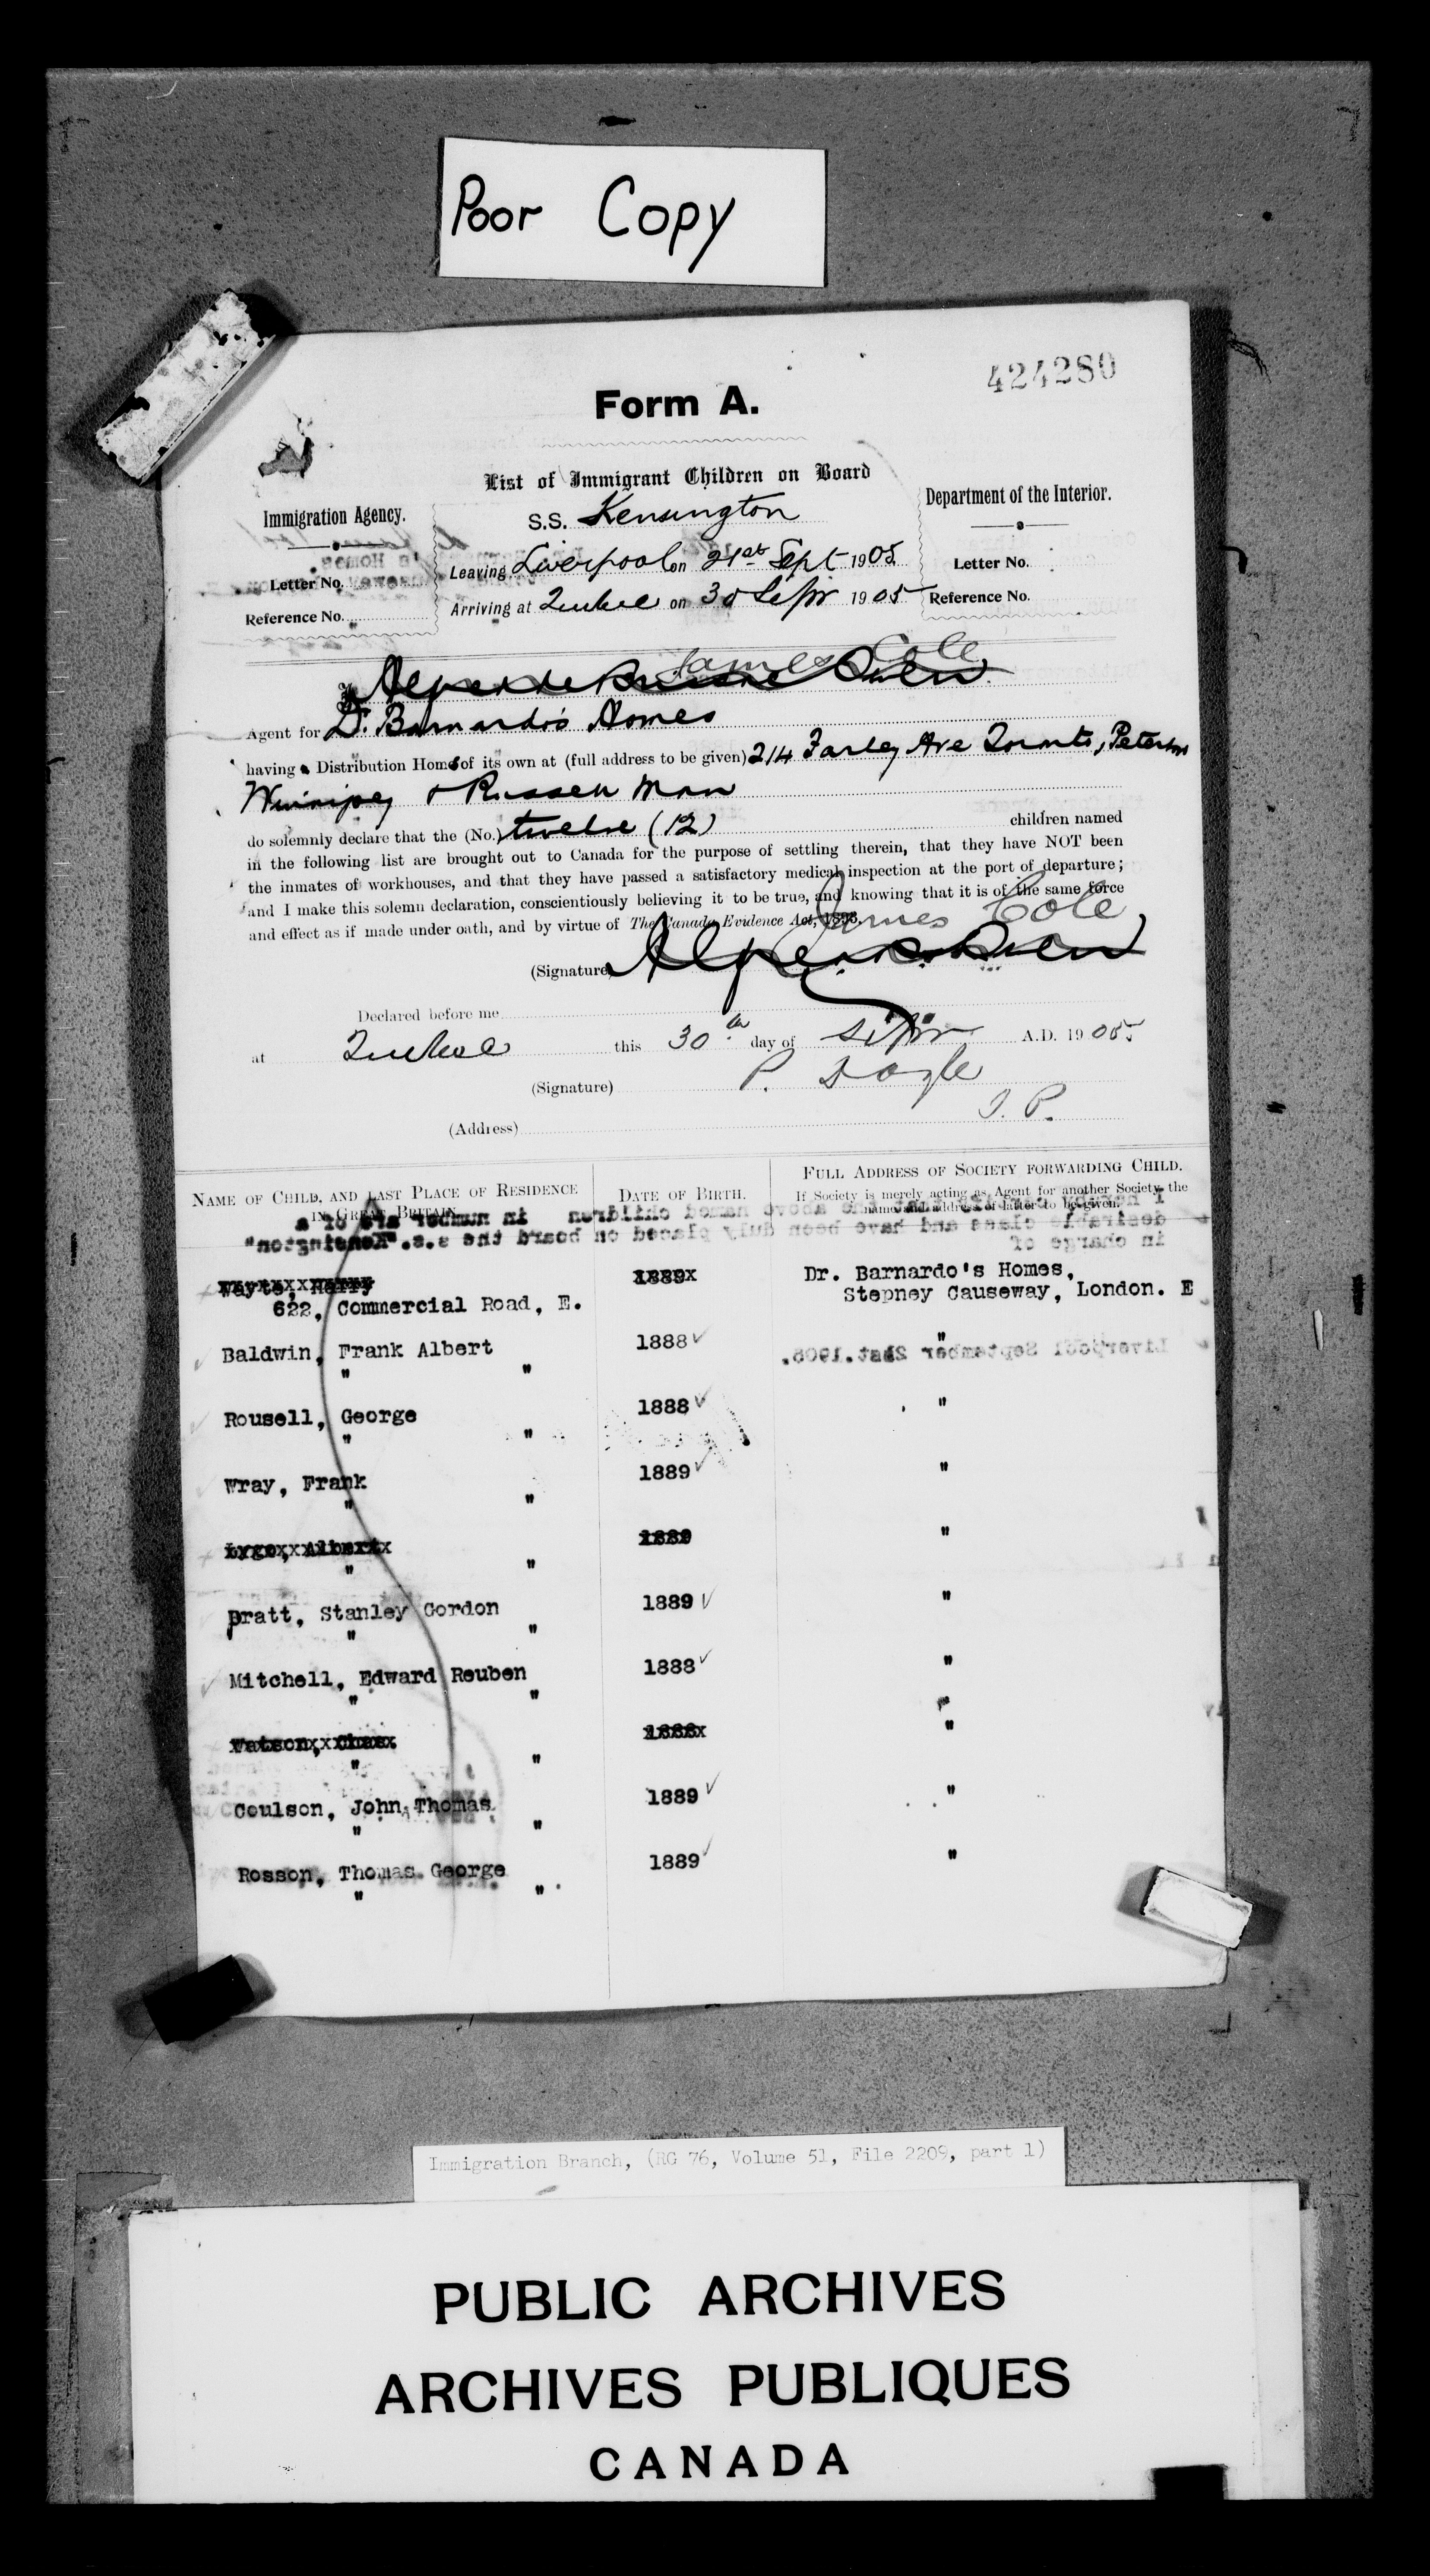 Poor Copy
424280
Form A.
List of Immigrant Children on Board
Immigration Agency.
Department of the Interior.
S.S. Kensington
Letter No.
Leaving Liverpool on 21st Sept 1905
Letter No.
Reference No.
Arriving at Quebec on 30 Sepr 1905
Reference No.
I, James Cole
Agent for Dr. Barnardo's Homes
having a Distribution Homes of its own at (full address to be given) 214 Farley Ave Toronto, Peterboro
Winnipeg & Russell Man
do solemnly declare that the (No.) twelve (12) children named
in the following list are brought out to Canada for the purpose of settling therein, that they have NOT been
the inmates of workhouses, and that they have passed a satisfactory medical inspection at the port of departure;
and I make this solemn declaration, conscientiously believing it to be true, and knowing that it is of the same force
and effect as if made under oath, and by virtue of The Canada Evidence Act, 1893.
James Cole
(Signature)
Declared before me
at Quebec this 30th day of Sepr A.D. 1905
(Signature) P. Doyle
J. P.
(Address)
NAME OF CHILD, AND LAST PLACE OF RESIDENCE IN GREAT BRITAIN.
DATE OF BIRTH.
FULL ADDRESS OF SOCIETY FORWARDING CHILD.
If Society is merely acting as Agent for another Society, the
name and address of latter to be given.
Wayte, Harry 1889 Dr. Barnardo's Homes,
622, Commercial Road, E. Stepney Causeway, London. E
Baldwin, Frank Albert 1888 "
" "
Rousell, George 1888 "
" "
Wray, Frank 1889 "
" "
Albert 1889 "
" "
Pratt, Stanley Gordon 1889 "
" "
Mitchell, Edward Reuben 1888 "
" "
Watson, Chas. 1888 "
" "
Coulson, John Thomas 1889 "
" "
Rosson, Thomas George 1889 "
" "
Immigration Branch, (RG 76, Volume 51, File 2209, part 1)
PUBLIC ARCHIVES
ARCHIVES PUBLIQUES
CANADA